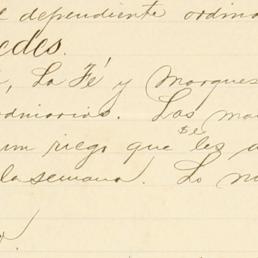 e dependiente ordina
edes.
, La Fé y Marques
rdinarios. Las ma
se
um riego que les a
la semana. Lo m